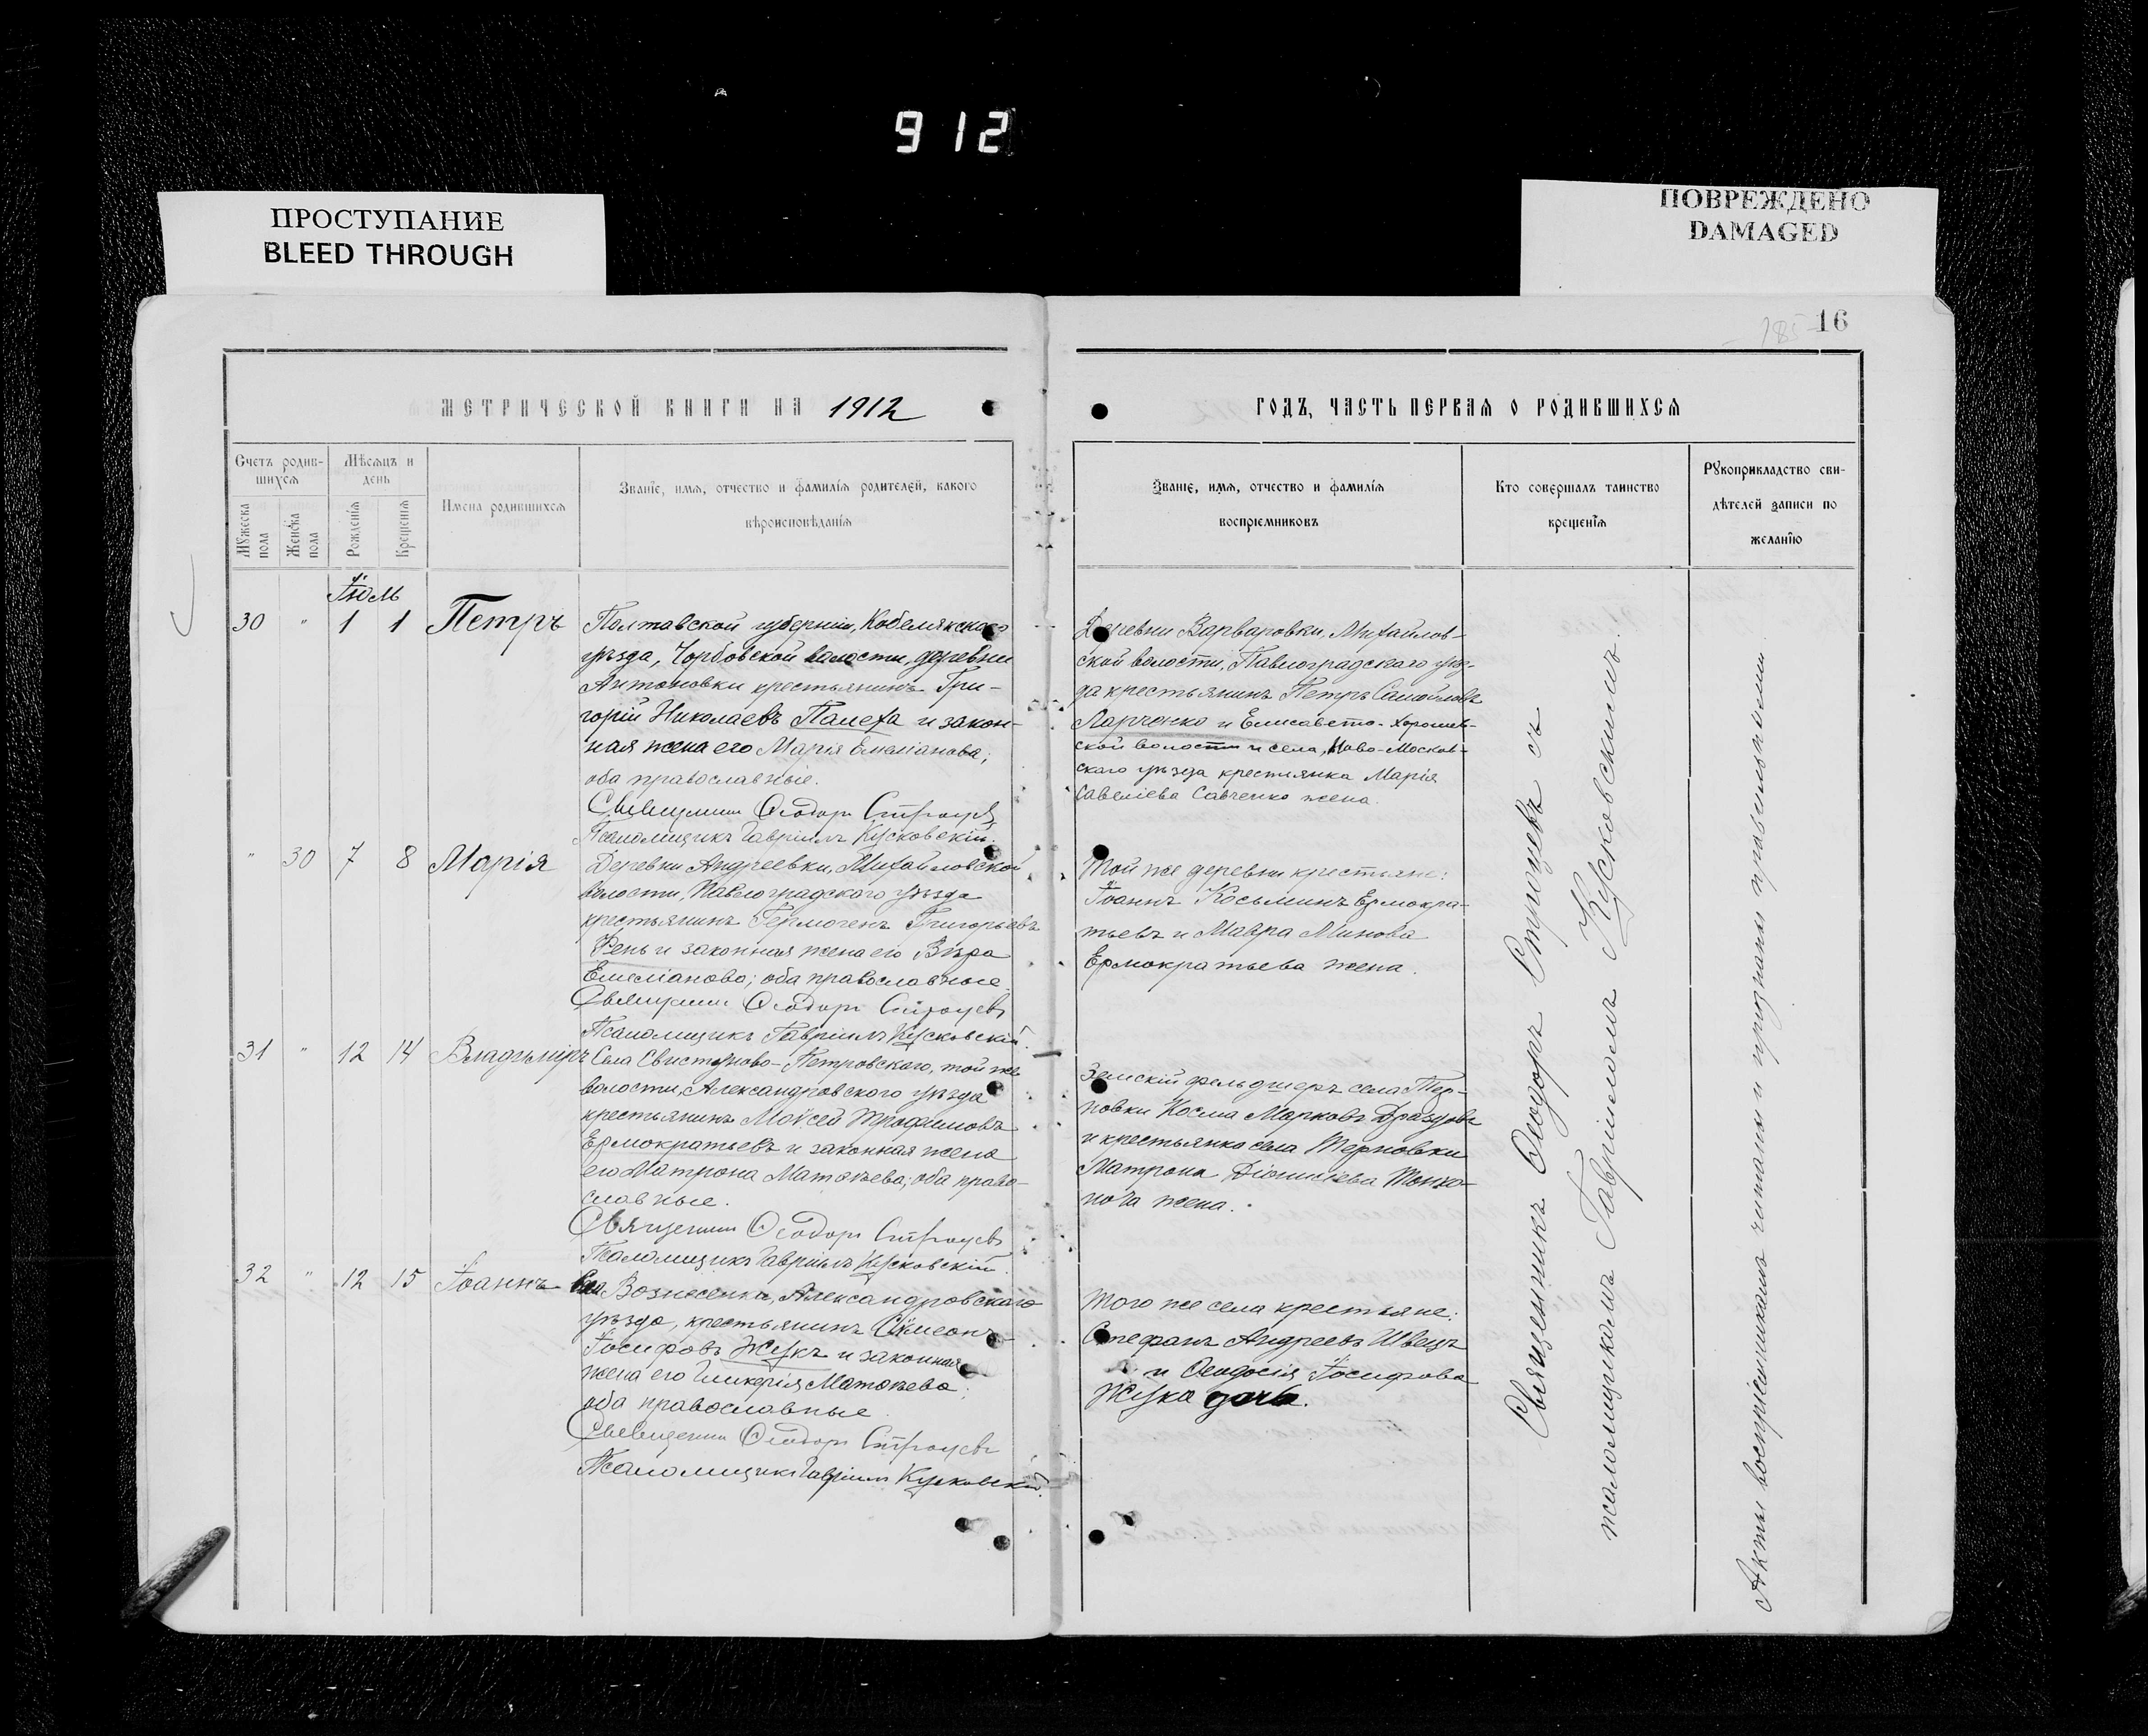 912
ПРОСТУПАНИЕ
BLEED THROUGH
ПОВРЕЖДЕНО
DAMAGED
16
МЕТРИЧЕСКОЙ КНИГИ НА 1912
ГОДЪ, ЧАСТЬ ПЕРВАЯ О РОДИВШИХСЯ
Счетъ родив-
шихся
Мужеска пола
Женска пола
Мѣсяцъ и
день
Рожденія
Крещенія
Имена родившихся
Званіе, имя, отчество и фамилія родителей, какого
вѣроисповѣданія
Званіе, имя, отчество и фамилія
воспріемниковъ
Кто совершалъ таинство
крещенія
Рукоприкладство сви-
дѣтелей записи по
желанію
Іюль
30 " 1 1 Петръ
Полтавской губерніи, Кобелякскаго
уѣзда, Чорбовской волости, деревни
Антоновки крестьянинъ Гри-
горій Николаевъ Палеха и закон-
ная жена его Марія Емеліанова;
оба православные.
Священникъ Ѳеодоръ Строцевъ
Псаломщикъ Гавріилъ Кусковскій.
Деревни Варваровки, Михайлов-
ской волости, Павлоградскаго уѣз-
да крестьянинъ Петръ Самойловъ
Ларченко и Елисавето-Хорошев-
ской волости и села, Ново-Москов-
скаго уѣзда крестьянка Марія
Савеліева Савченко жена.
" 30 7 8 Марія
Деревни Андреевки, Михайловской
волости, Павлоградскаго уѣзда
крестьянинъ Гермогенъ Григорьевъ
Фень и законная жена его Вѣра
Емеліанова; оба православные.
Священникъ Ѳеодоръ Строцевъ
Псаломщикъ Гавріилъ Кусковскій.
Той же деревни крестьяне:
Іоаннъ Косьминъ Ермокра-
тьевъ и Мавра Минова
Ермократьева жена.
31 " 12 14 Владиміръ
Села Свистуново-Петровскаго, той же
волости, Александровскаго уѣзда
крестьянинъ Моѵсей Трофимовъ
Ермократьевъ и законная жена
его Матрона Матѳѣева; оба право-
славные.
Священникъ Ѳеодоръ Строцевъ
Псаломщикъ Гавріилъ Кусковскій.
Земскій фельдшеръ села Тер-
новки Косма Марковъ Драздовъ
и крестьянка села Терновки
Матрона Діонисіева
жена.
32 " 12 15 Іоаннъ
Села Вознесенки, Александровскаго
уѣзда, крестьянинъ Сѵмеонъ
Іосифовъ Жукъ и законная
жена его Гликерія Матѳѣева;
оба православные.
Священникъ Ѳеодоръ Строцевъ
Псаломщикъ Гавріилъ Кусковскій.
Того же села крестьяне:
Стефанъ Андреевъ Швецъ
и Ѳеодосія Іосифова
Жука дочь.
Священникъ Ѳеодоръ Строцевъ съ
псаломщикомъ Гавріиломъ Кусковскимъ.
Акты воспріемникамъ читаны и признаны правильными.